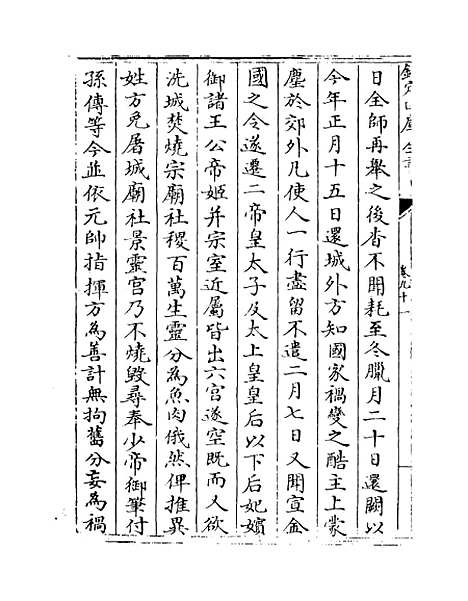 欽定四庫全書
卷九十一
日全師再舉之後杳不聞耗至冬臘月二十日還闕以
今年正月十五日還城外方知國家禍變之酷主上蒙
塵於郊外凡使人一行盡留不遣二月七日又聞宣金
國之令遂遷二帝皇太子及太上皇皇后以下后妃嬪
御諸王公帝姬并宗室近屬皆出六宫遂空既而又欲
洗城焚燒宗廟社稷百萬生靈分為魚肉俄然俾推異
姓方免屠城廟社景靈宫乃不燒毀尋奉少帝御筆付
孫傳等今並依元帥指揮方為善計無拘舊分妄為禍